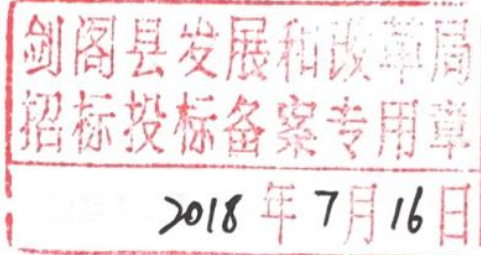 剑阁县发展和改革局
招标投标备案专用章
2018年7月16日